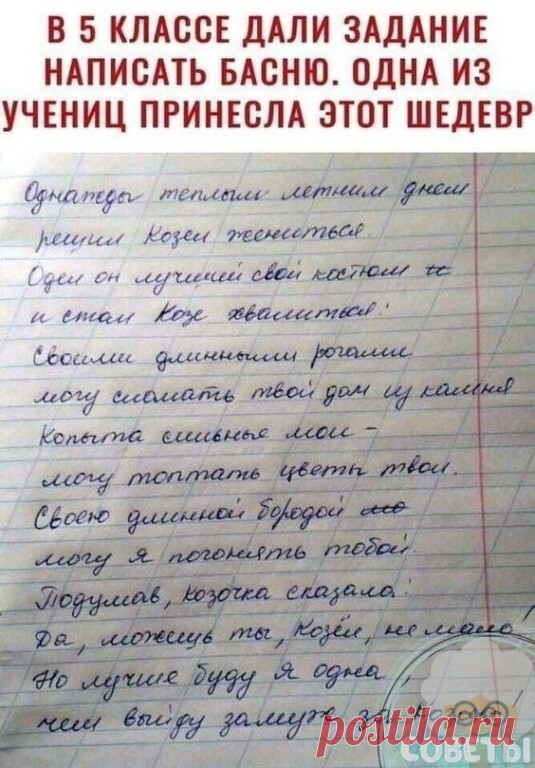 В 5 КЛАССЕ ДАЛИ ЗАДАНИЕ
НАПИСАТЬ БАСНЮ. ОДНА ИЗ
УЧЕНИЦ ПРИНЕСЛА ЭТОТ ШЕДЕВР
Однажды теплым летним днем
решил Козел жениться.
Одел он лучший свой костюм
и стал Козе хвалиться:
Своими длинными рогами
могу сломать твой дом из камня
Копыта сильные мои –
могу топтать цветы твои.
Своею длинной бородой
могу я погонять тобой.
Подумав, козочка сказала:
Да, можешь ты, Козёл, не мало!
Но лучше буду я одна,
чем выйду замуж за козла!
postila.ru
СОВЕТЫ